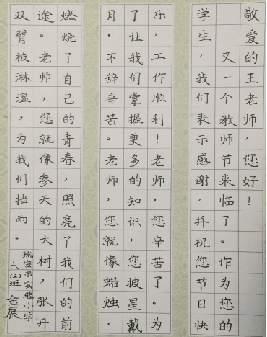 敬爱的王老师，您好！
又一个教师节来临了。作为您的
学生，我们表示感谢，并祝您节日快
乐，工作顺利！老师，您辛苦了。为
了让我们掌握更多的知识，您披星戴
月，不辞辛苦。老师，您就像蜡烛，
燃烧了自己的青春，照亮了我们的前
途。老师，您就像参天的大树，张开
双臂被淋湿，为我们挡雨。